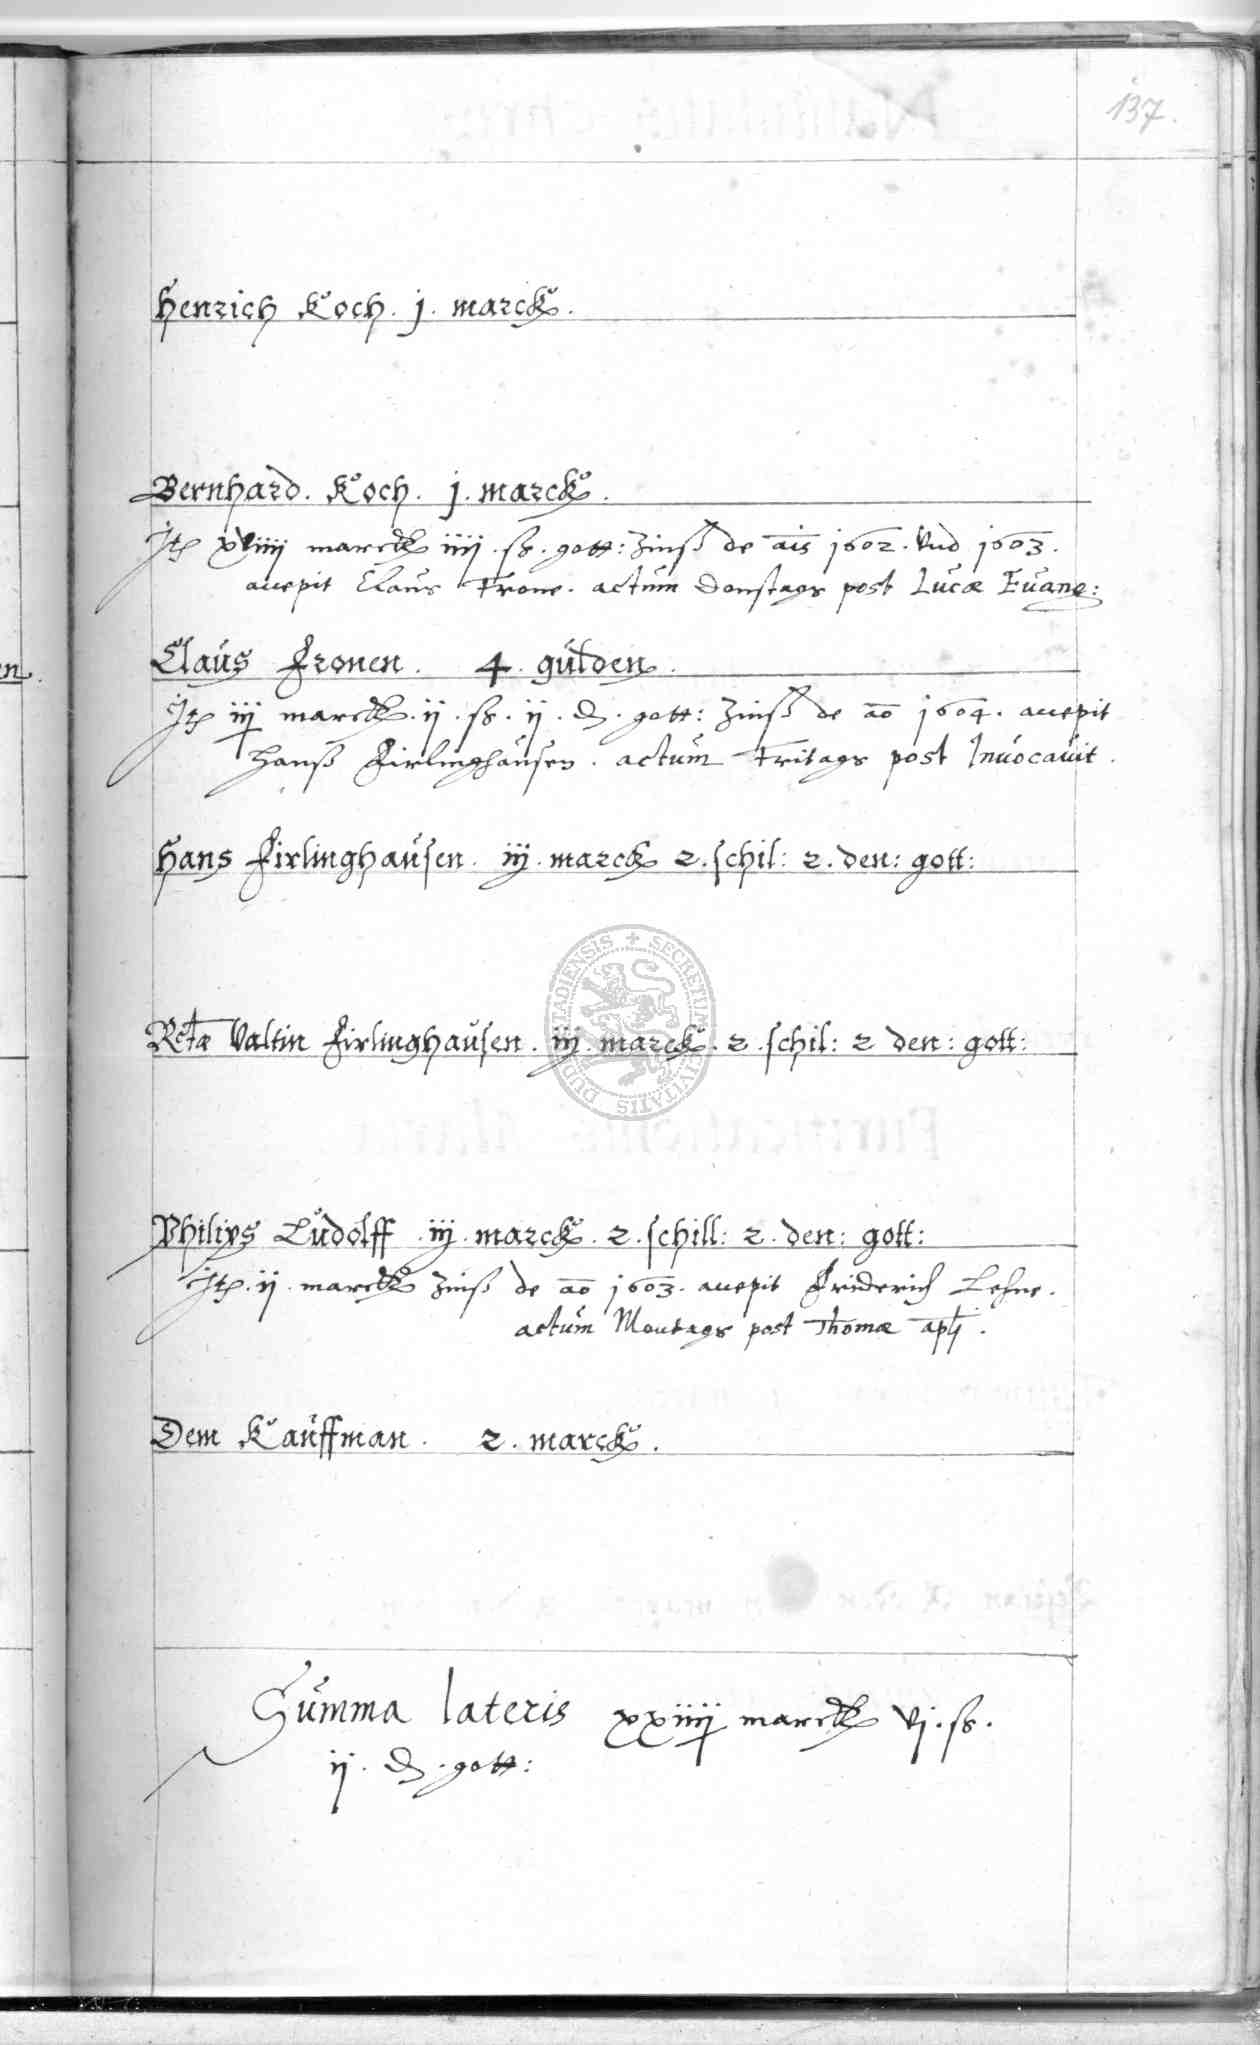 137.
Henrich Koch. j. marck.
Bernhard. Koch. j. marck.
Jtem marck iiij. ß. gott: Zinß de ais 1602. Vnd 1603.
accepit Claus Frone. actum Donstags post Lucæ Evang:
Claus Fronen. 4. gulden.
Jtem iij marck. ij. ß. ij. d. gott: Zinß de ao 1604. accepit
Hanß Firlinghausen. actum Fritags post Invocavit.
Hans Firlinghausen. iij. marck 2. schil: 2. den: gott:
Valtin Firlinghausen. iij. marck. 2. schil: 2 den: gott:
SECRETUM CIVITATIS DUDERSTADIENSIS
Philips Ludolff. iij. marck. 2. schill: 2. den: gott:
Jtem. ij. marck Zinß de ao 1603. accepit Friderich Lehne.
actum Montags post Thomæ apli.
Dem Kauffman. 2. marck.
Summa lateris xxiiij marck vj. ß.
ij. d. gott: